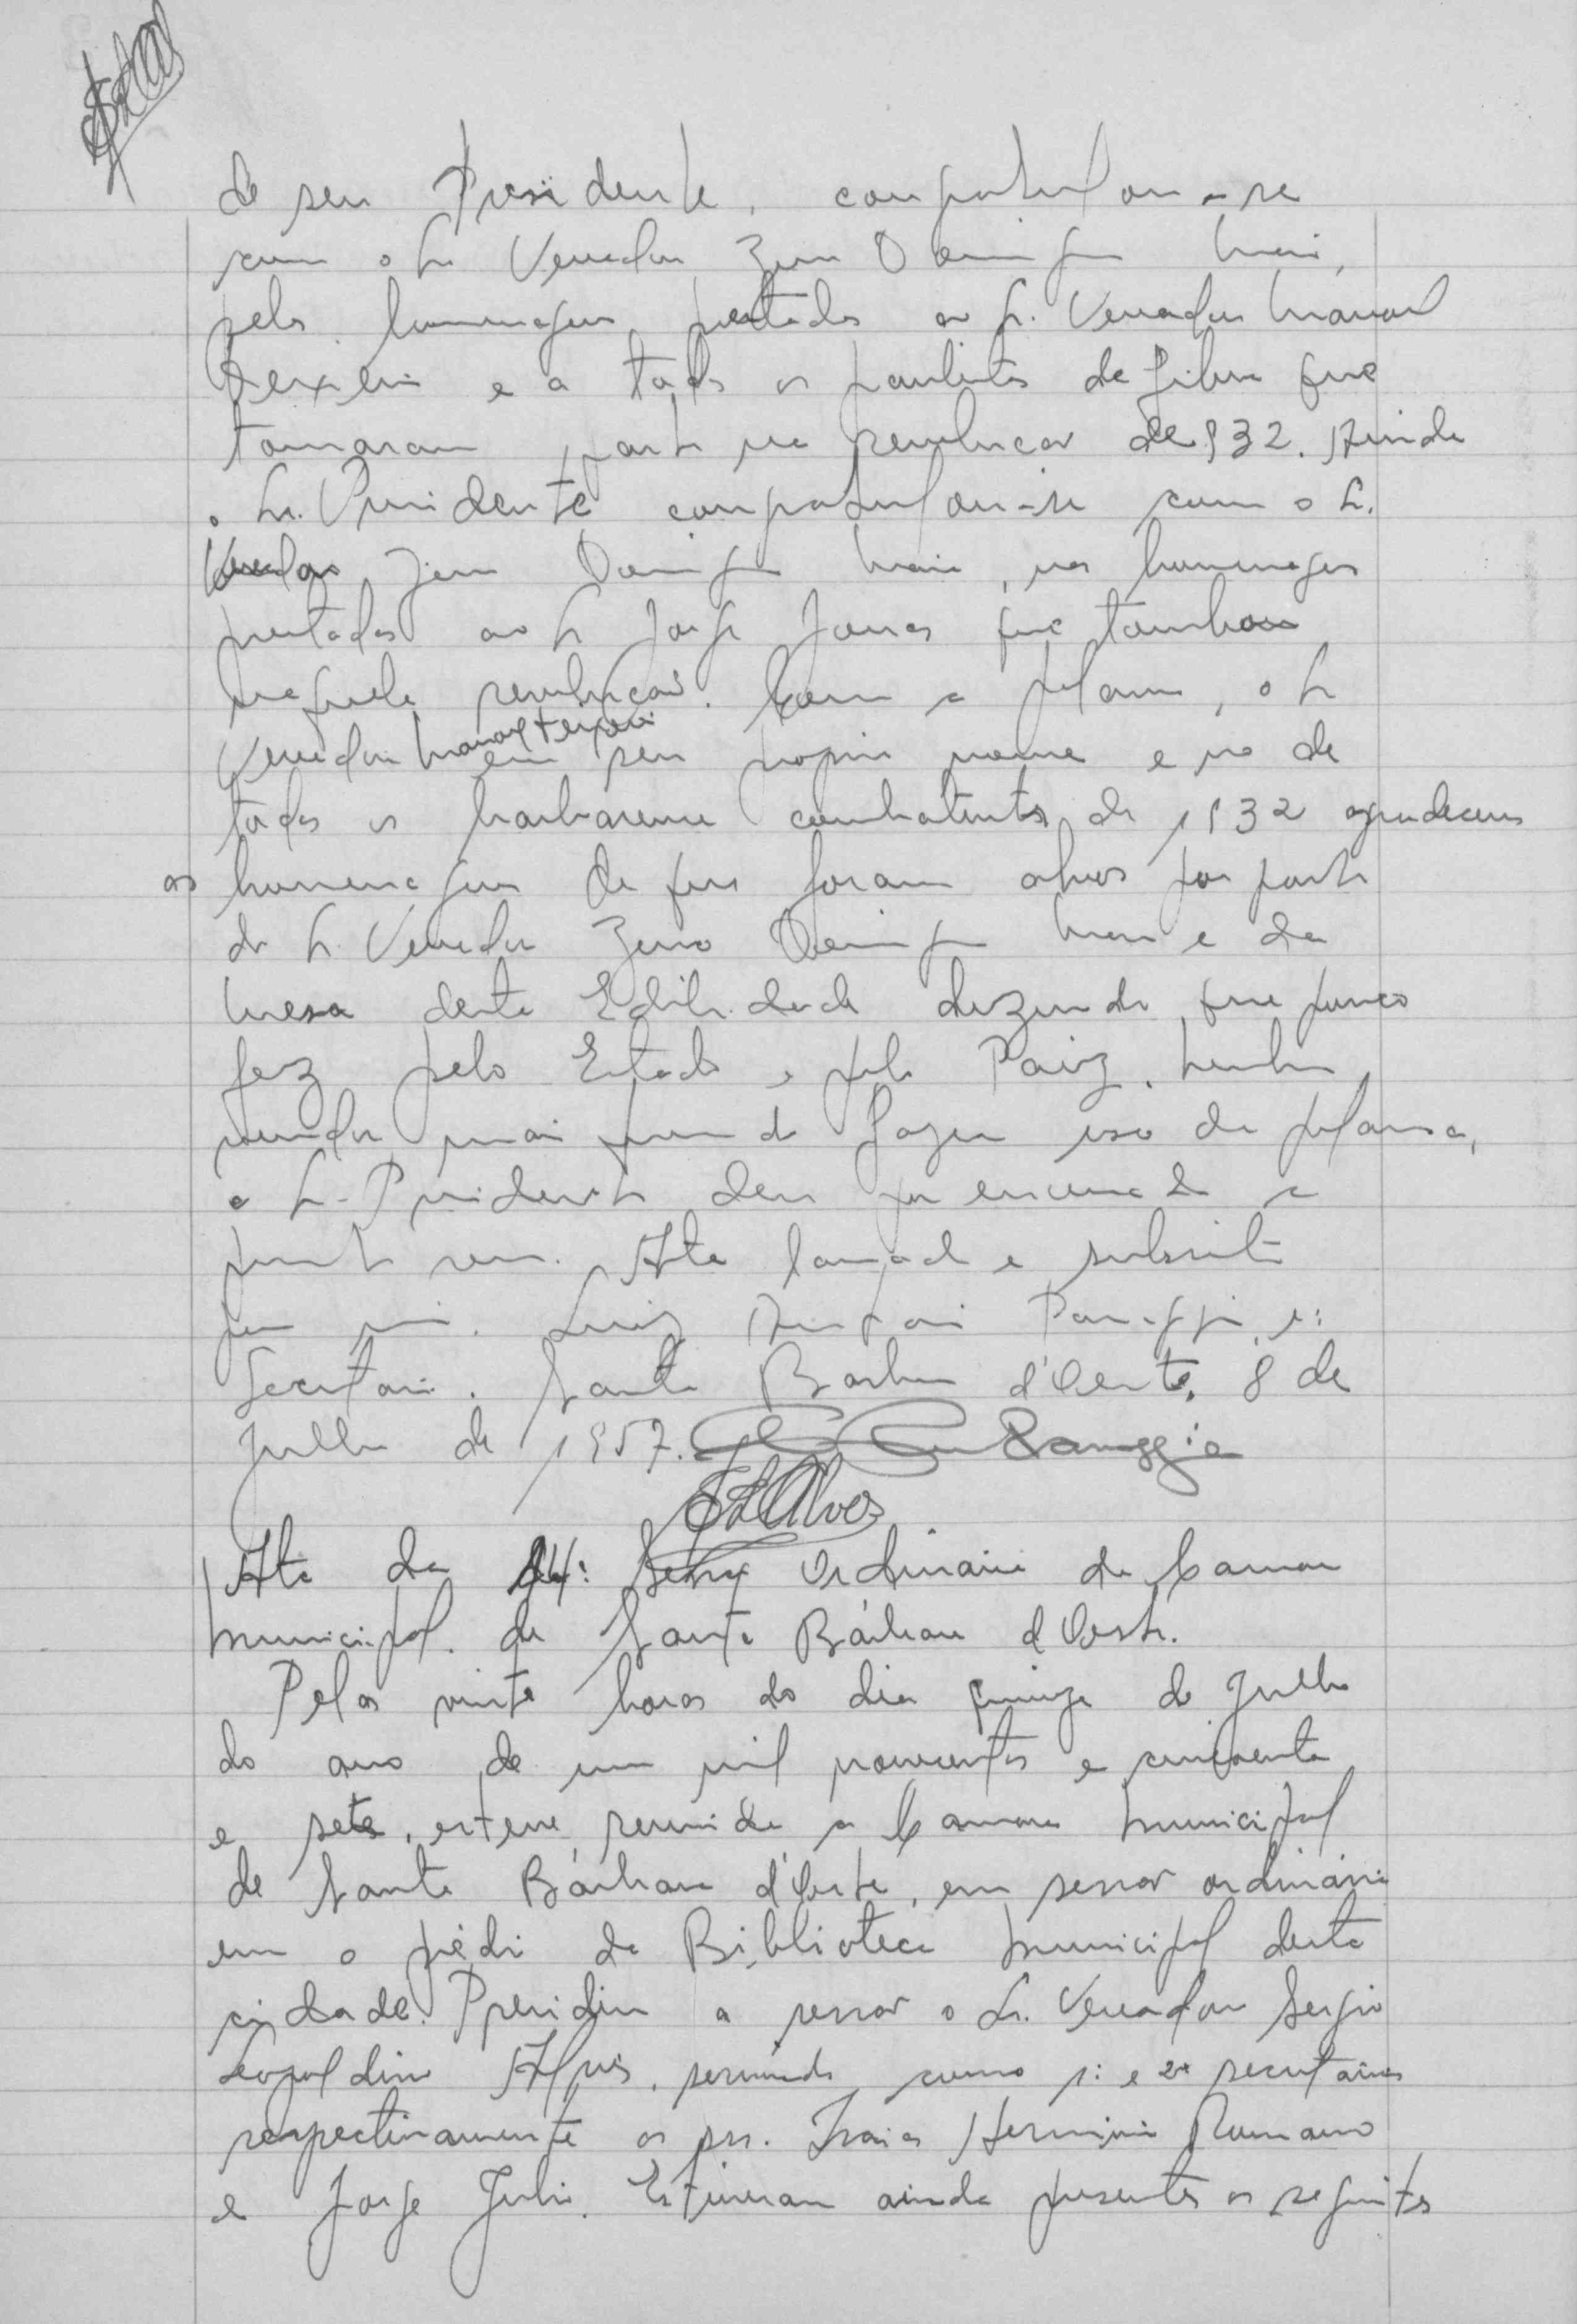 de seu Presidente, congratulou-se
com o Sr Vereador Zeno Domingos Maia,
pelas homenagens prestadas ao Sr. Vereador Manoel
Teixeira e a todos os paulistas de fibra que
tomaram parte na revolução de 932. Ainda
o Sr. Presidente congratulou-se com o Sr.
Vereador Zeno Domingos Maia, nas homenagens
prestadas ao Sr Jorge que tambem
naquela revolução. Com a palavra, o Sr
Vereador Manoel Teixeira em seu proprio nome e no de
todos os barbarense combatentes de 1932 agradeceu
as homenagens de que foram alvos por parte
do Sr. Vereador Zeno Domingos Maia e da
Mesa desta Edilidade dizendo que pouco
fez pelo Estado e pelo Paiz. Nenhum
vereador mais querendo fazer uso da palavra,
o Sr. Presidente deu por encerrada a
presente sessão. Ata lavrada e subscrita
por mim. Luiz Panaggio, 1º
Secretario. Santa Barbara d'Oeste, 8 de
Julho de 1957. Panaggio
SLAlves
Ata da 14ª Sessão Ordinaria da Camara
Municipal de Santa Bárbara d'Oeste.
Pelas vinte horas do dia quinze de Julho
do ano de um mil novecentos e cincoenta
e sete, esteve reunida a Camara Municipal
de Santa Bárbara d'Oeste, em sessão ordinária
em o prédio da Biblioteca Municipal desta
cidade. Presidiu a sessão o Sr. Vereador Sergio
Leopoldino Alves, servindo como 1º e 2º secretários
respectivamente os srs. Isaias Herminio Romano
e Jorge Julio. Estiveram ainda presentes os seguintes